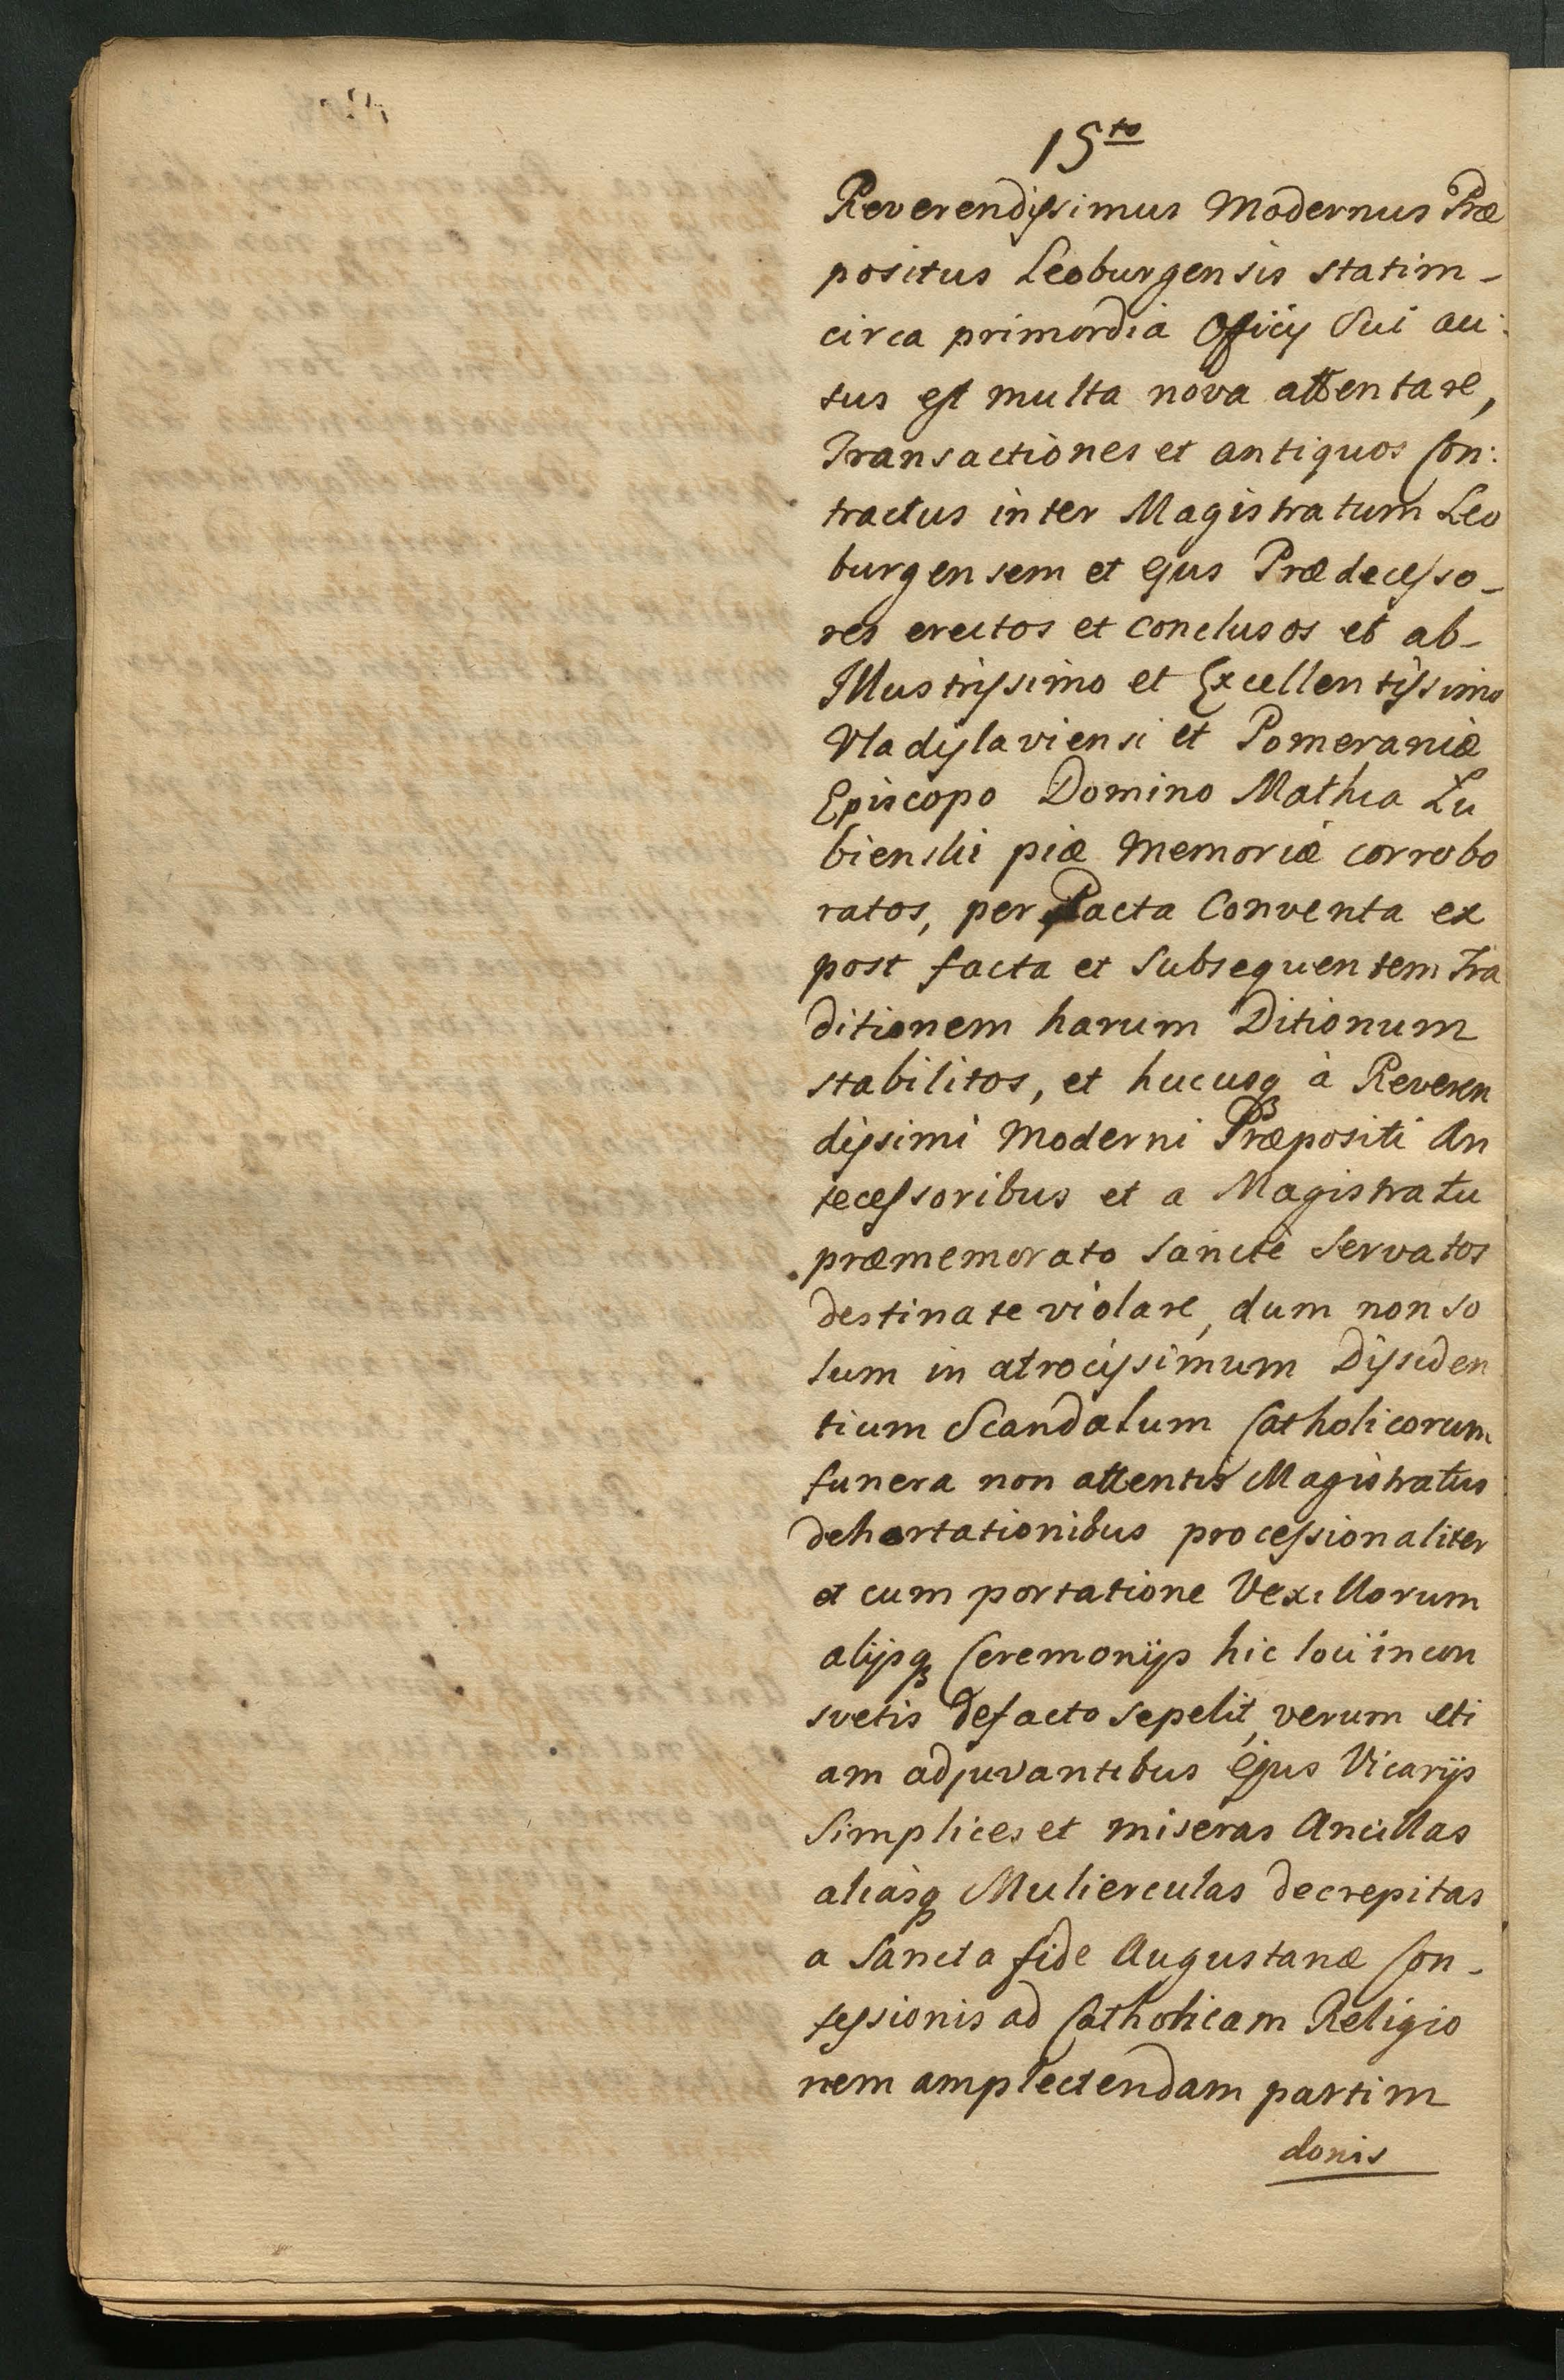 15to
Reverendissimus Modernus Præ
positus Leoburgensis statim-
circa primordia Officij Sui au:
sus est multa nova attentare,
Transactiones et antiquos Con:
tractus inter Magistratum Leo
burgensem et ejus Prædecesso-
res erectos et conclusos et ab-
Illustrissimo et Excellentissimo
Vladislaviensi et Pomeraniæ
Episcopo Domino Mathia Lu
bienski piæ Memoriæ corrobo
ratos, per Pacta Conventa ex
post facta et Subsequentem Tra
ditionem harum Ditionum
stabilitos, et hucusq à Reveren
dissimi Moderni Præpositi An
tecessoribus et a Magistratu
præmemorato Sancte Servatos
destinate violare, dum non so
lum in atrocissimum Dissiden
tium Scandalum Catholicorum
funera non attentis Magistratus
dehortationibus processionaliter
et cum portatione Vexillorum
alijsq Ceremonijs hic loci incon
svetis defacto sepelit, verum eti
am adjuvantibus Ejus Vicarijs
Simplices et miseras Ancillas
aliasq Mulierculas decrepitas
a Sancta fide Augustanæ Con-
fessionis ad Catholicam Religio
nem amplectendam partim
donis